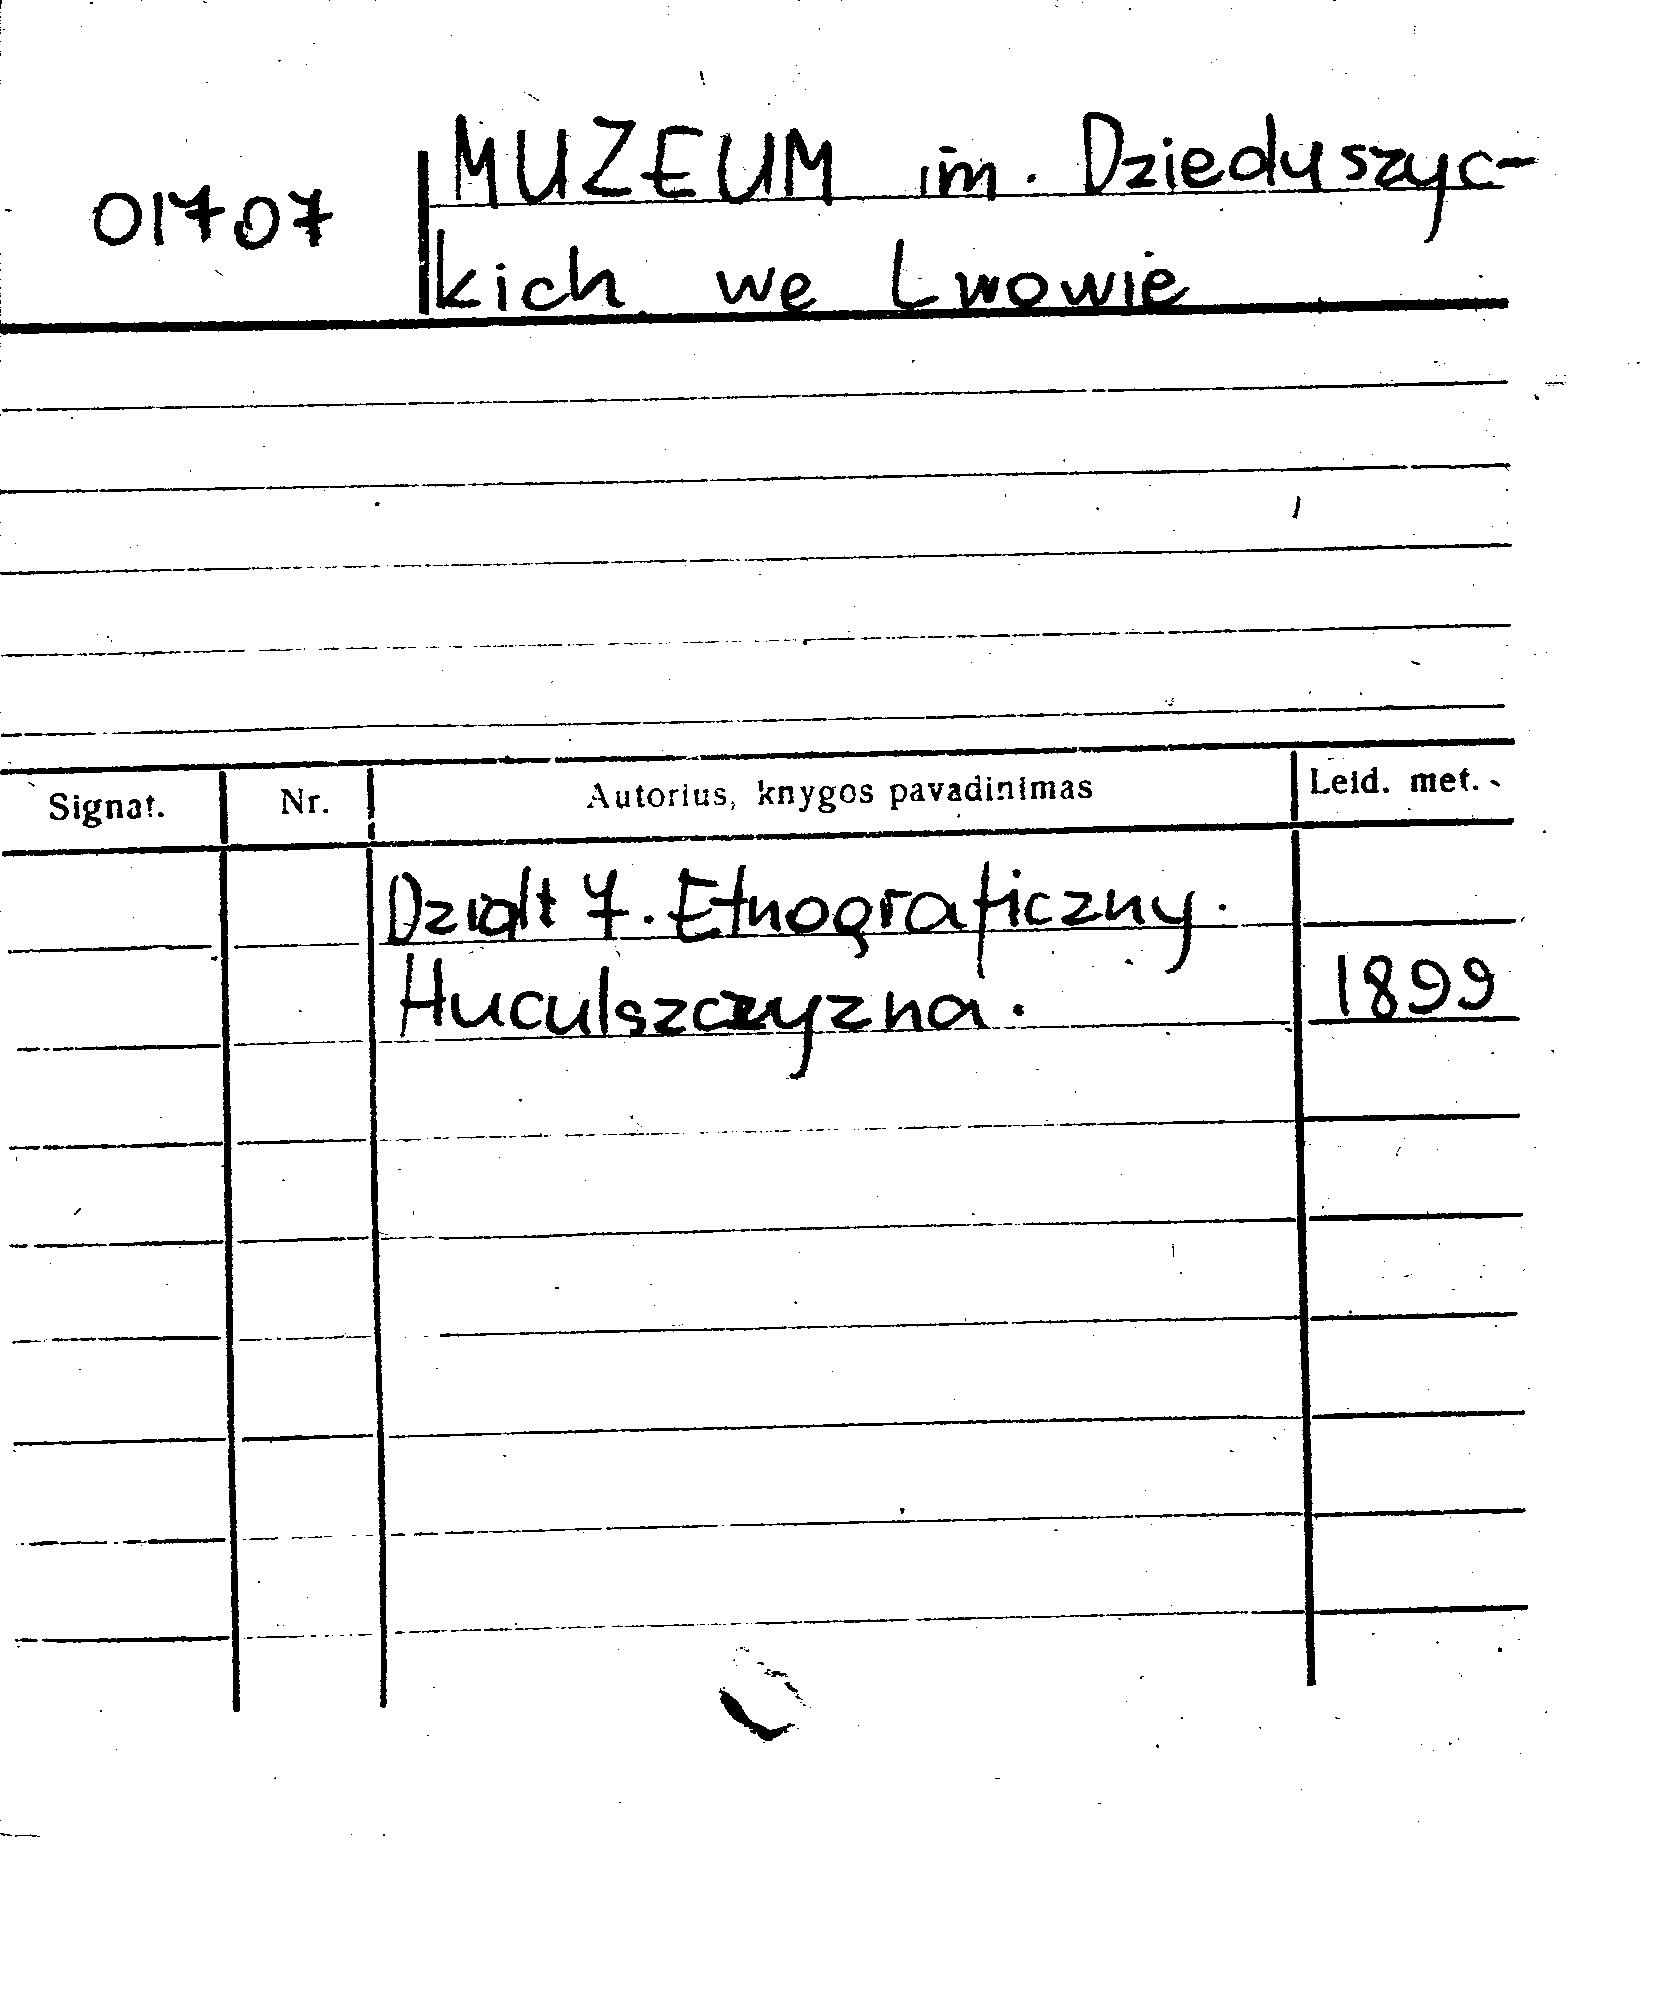 01707
MUZEUM im. Dzieduszyc-
kich we Lwowie
Signat. Nr. Autorius, knygos pavadinimas Leid. met.
Dział 7. Etnograficzny.
Huculszczyzna. 1899